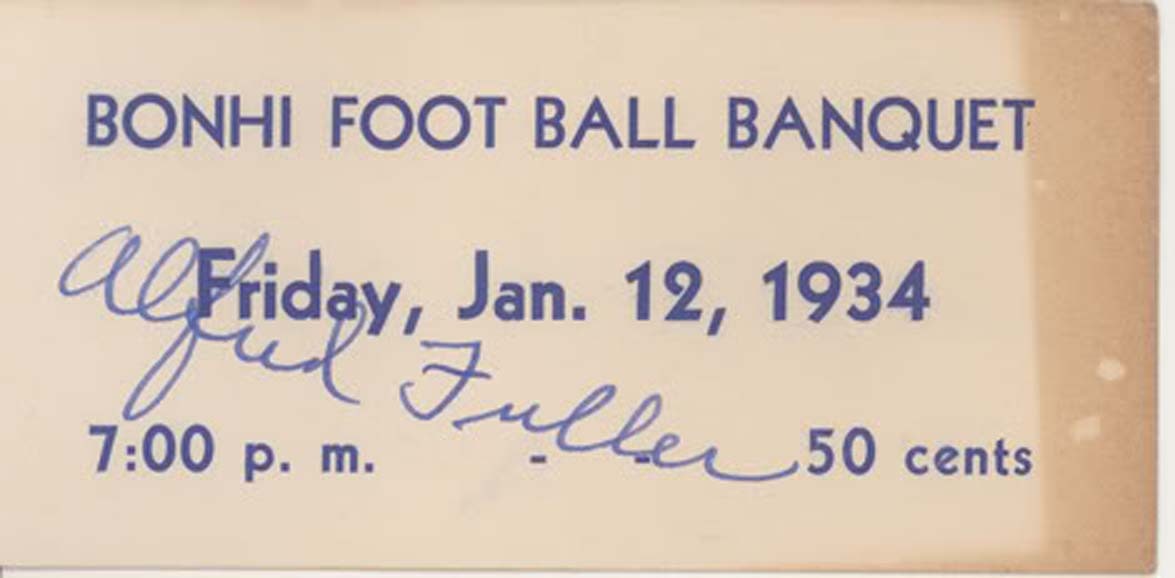 BONHI FOOT BALL BANQUET
Friday, Jan. 12, 1934
Alfred Fuller
7:00 p. m. - - 50 cents